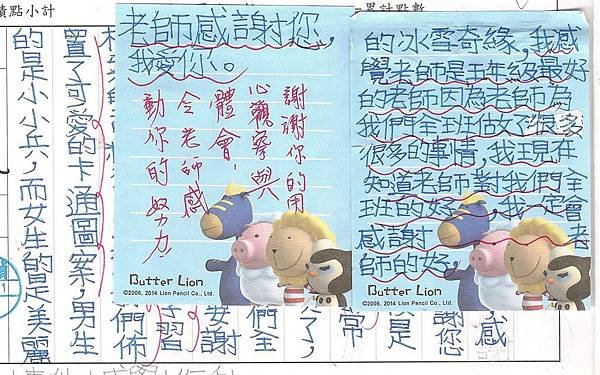 點小計
累計點數
老師感謝您,
我愛你。
謝謝你的用
心觀察與
體會,
令老師感
動你的努力
Butter Lion
©2006, 2014 Lion Pencil Co., Ltd.
的冰雪奇緣,我感
覺老師是五年級最好
的老師因為老師為
我們全班做了很多
很多的事情,我現在
知道老師對我們全
班的好,我一定會
感謝老
師的好。
Butter Lion
©2006, 2014 Lion Pencil Co., Ltd.
感
謝您
是
常
了,
們全
謝
習
們佈
置了可愛的卡通圖案,男生
的是小小兵,而女生的是美麗